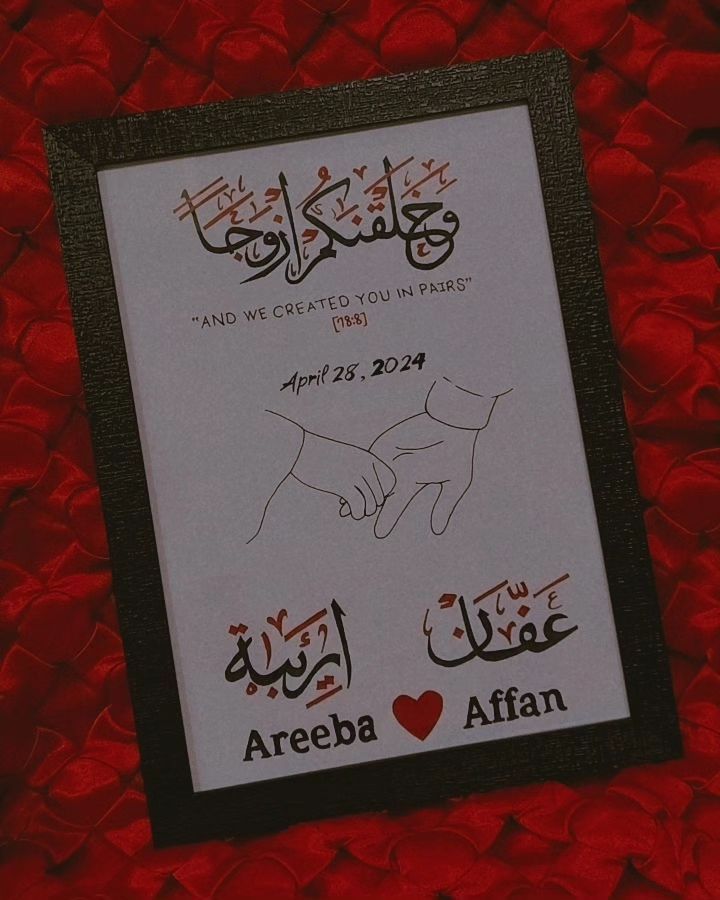 وخلقنكم ازوجا
"AND WE CREATED YOU IN PAIRS"
[78:8]
April 28, 2024
اريبة عفّان
Areeba Affan